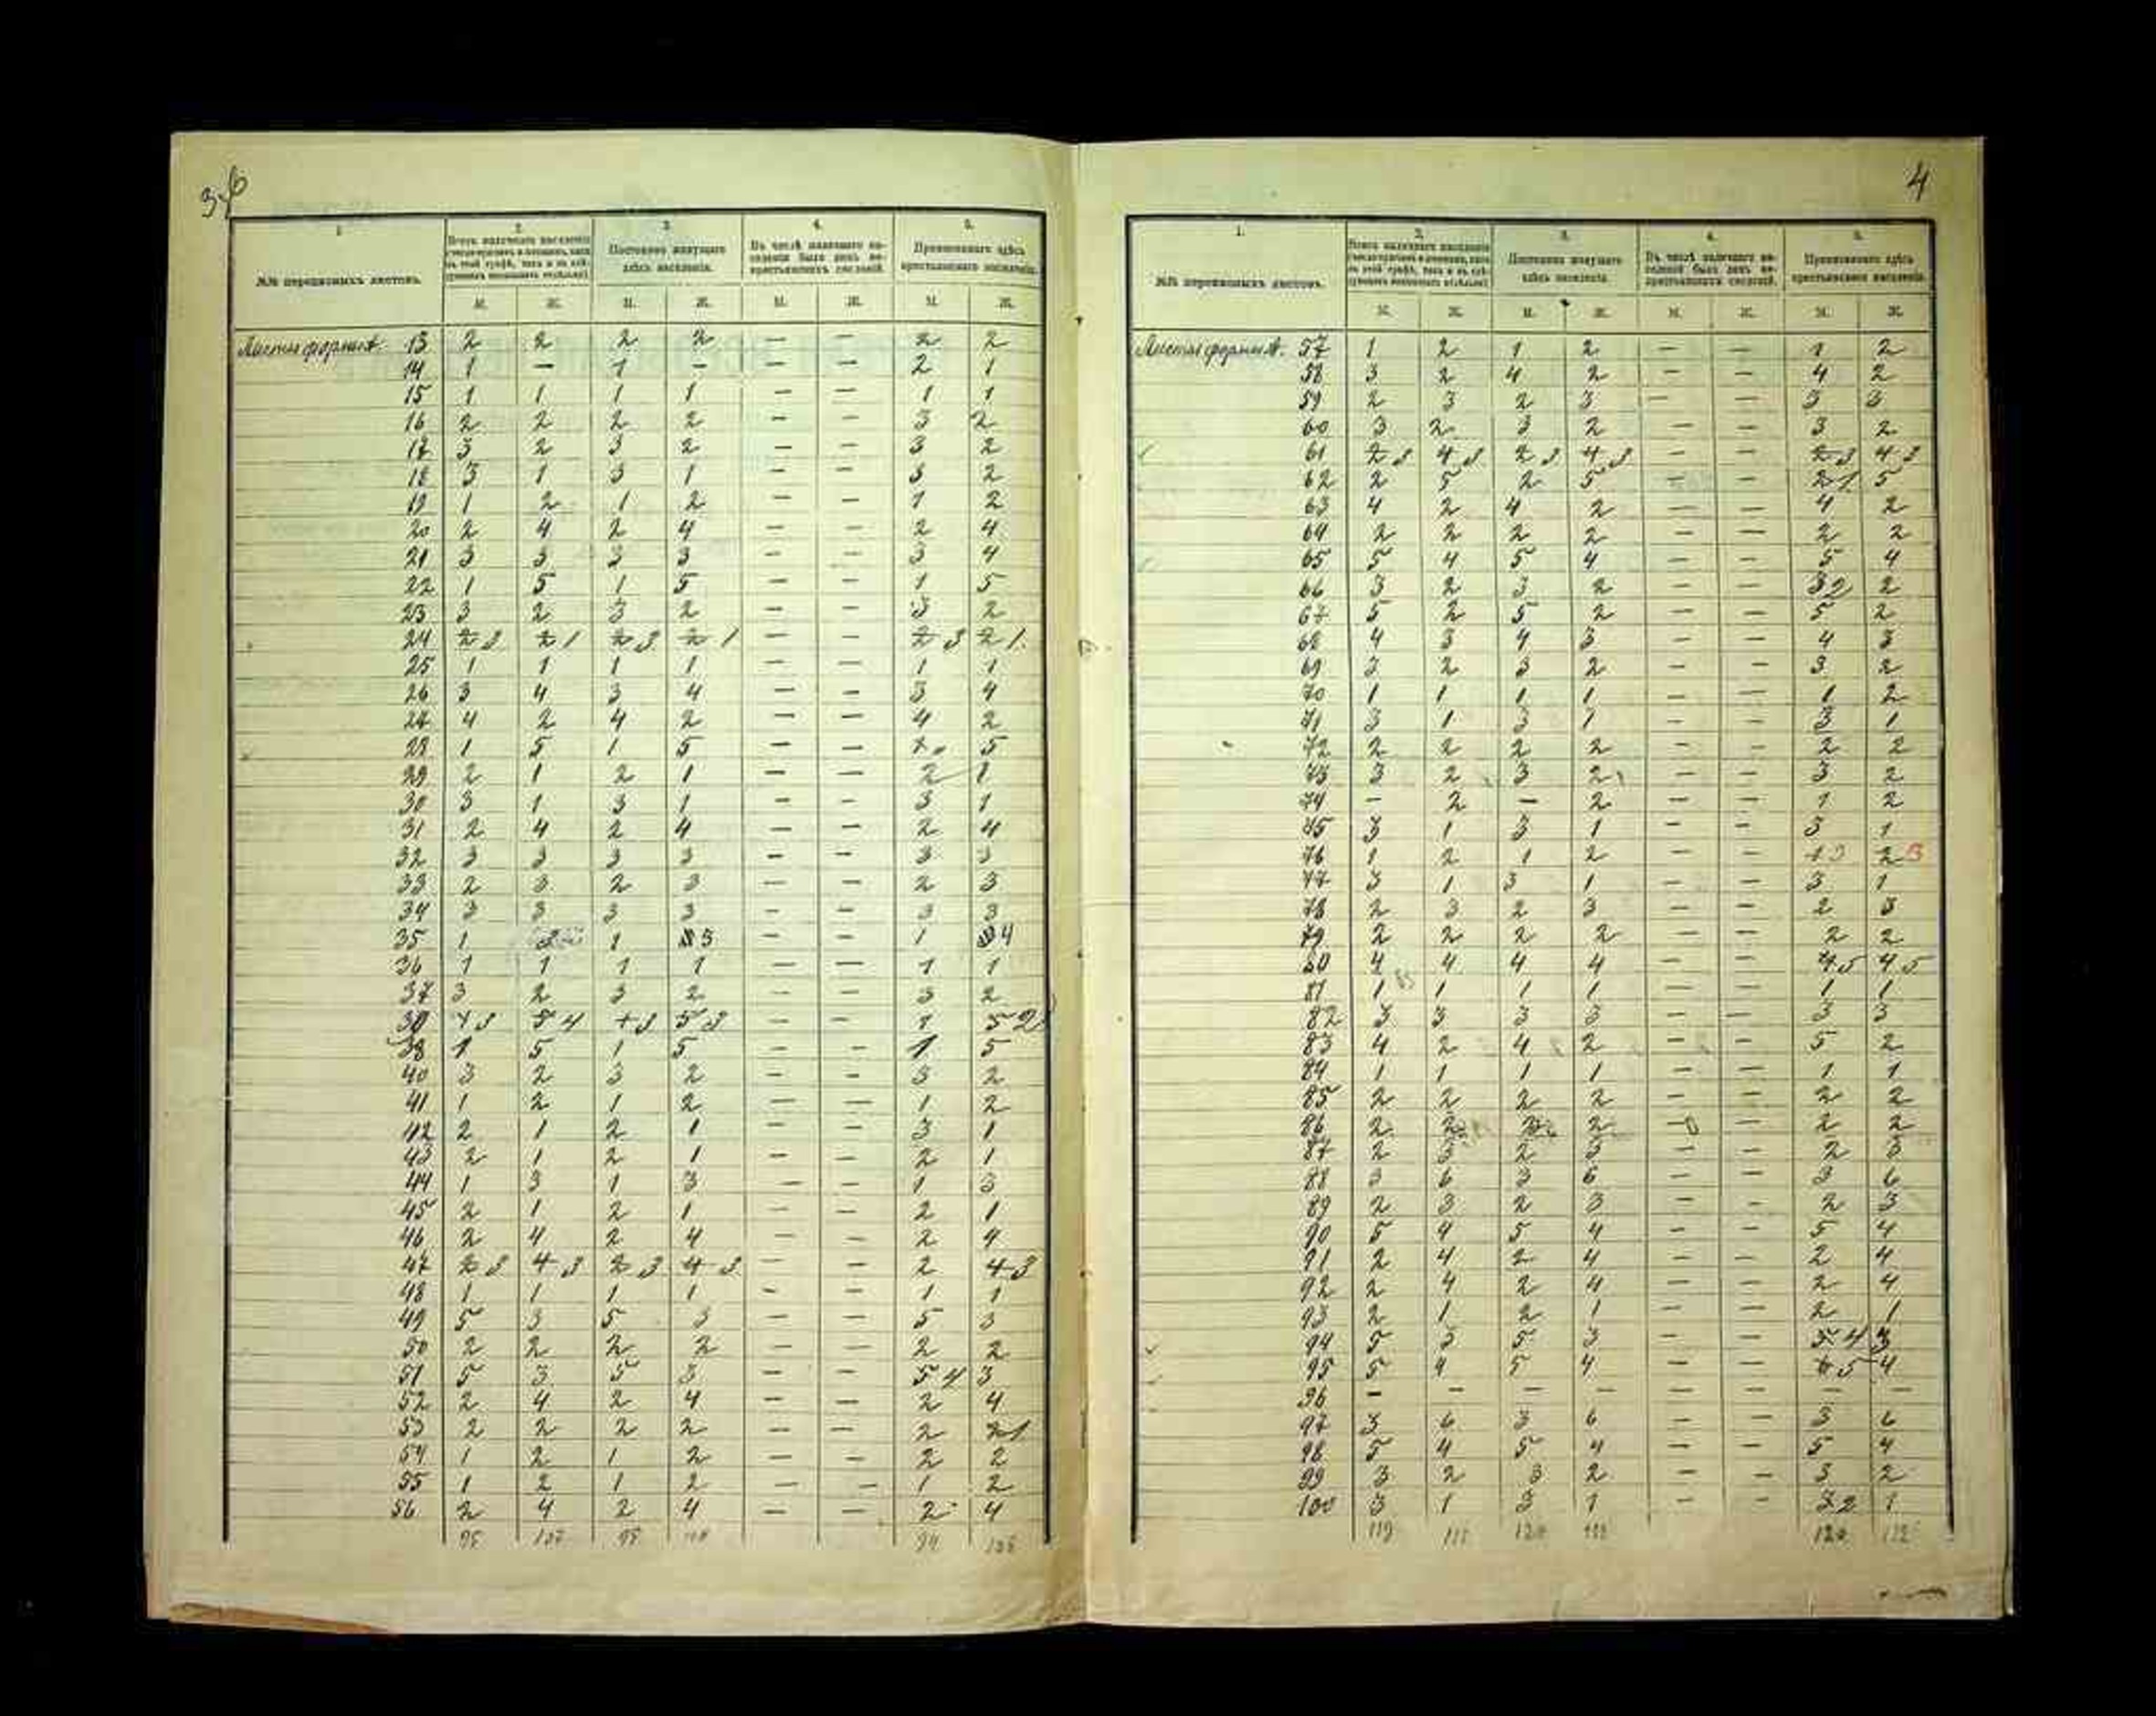 3
1.
2.
3.
4.
5.
№№ переписныхъ листовъ.
Всего наличнаго населенія
Постоянно живущаго
здѣсь населенія.
Въ числѣ наличнаго на-
селенія было лицъ не-
крестьянскихъ сословій.
Приписаннаго здѣсь
крестьянскаго населенія.
М. Ж. М. Ж. М. Ж. М. Ж.
Листы формы А. 13 2 2 2 2 — — 2 2
14 1 — 1 — — — 2 1
15 1 1 1 1 — — 1 1
16 2 2 2 2 — — 3 2
17 3 2 3 2 — — 3 2
18 3 1 3 1 — — 3 2
19 1 2 1 2 — — 1 2
20 2 4 2 4 — — 2 4
21 3 3 3 3 — — 3 4
22 1 5 1 5 — — 1 5
23 3 2 3 2 — — 3 2
24 2 3 2 1 2 3 2 1 — — 2 3 2 1
25 1 1 1 1 — — 1 1
26 3 4 3 4 — — 3 4
27 4 2 4 2 — — 4 2
28 1 5 1 5 — — 5
29 2 1 2 1 — — 2 1
30 3 1 3 1 — — 3 1
31 2 4 2 4 — — 2 4
32 3 3 3 3 — — 3 3
33 2 3 2 3 — — 2 3
34 3 3 3 3 — — 3 3
35 1 1 3 — — 1 4
36 1 1 1 1 — — 1 1
37 3 2 3 2 — — 3 2
1 3 5 4 1 3 5 3 — — 1 5 2
1 5 1 5 — — 1 5
40 3 2 3 2 — — 3 2
41 1 2 1 2 — — 1 2
42 2 1 2 1 — — 3 1
43 2 1 2 1 — — 2 1
44 1 3 1 3 — — 1 3
45 2 1 2 1 — — 2 1
46 2 4 2 4 — — 2 4
47 2 3 4 3 2 3 4 3 — — 2 4 3
48 1 1 1 1 — — 1 1
49 5 3 5 3 — — 5 3
50 2 2 2 2 — — 2 2
51 5 3 5 3 — — 5 4 3
52 2 4 2 4 — — 2 4
53 2 2 2 2 — — 2 2 1
54 1 2 1 2 — — 2 2
55 1 2 1 2 — — 1 2
56 2 4 2 4 — — 2 4
4
1.
2.
3.
4.
5.
№№ переписныхъ листовъ.
Всего наличнаго населенія
Постоянно живущаго
здѣсь населенія.
Въ числѣ наличнаго на-
селенія было лицъ не-
крестьянскихъ сословій.
Приписаннаго здѣсь
крестьянскаго населенія.
М. Ж. М. Ж. М. Ж. М. Ж.
Листы формы А. 57 1 2 1 2 — — 1 2
58 3 2 4 2 — — 4 2
59 2 3 2 3 — — 3 3
60 3 2 3 2 — — 3 2
61 2 3 4 3 2 3 4 3 — — 2 3 4 3
62 2 5 2 5 — — 2 1 5
63 4 2 4 2 — — 4 2
64 2 2 2 2 — — 2 2
65 5 4 5 4 — — 5 4
66 3 2 3 2 — — 3 2 2
67 5 2 5 2 — — 5 2
68 4 3 4 3 — — 4 3
69 3 2 3 2 — — 3 2
70 1 1 1 1 — — 1 2
71 3 1 3 1 — — 3 1
72 2 2 2 2 — — 2 2
73 3 2 3 2 — — 3 2
74 — 2 — 2 — — 1 2
75 3 1 3 1 — — 3 1
76 1 2 1 2 — — 1 3 2 3
77 3 1 3 1 — — 3 1
78 2 3 2 3 — — 2 3
79 2 2 2 2 — — 2 2
80 4 4 4 4 — — 4 5 4 5
81 1 1 1 1 — — 1 1
82 3 3 3 3 — — 3 3
83 4 2 4 2 — — 5 2
84 1 1 1 1 — — 1 1
85 2 2 2 2 — — 2 2
86 2 2 2 — 2 2
87 2 3 2 3 — — 2 3
88 3 6 3 6 — — 3 6
89 2 3 2 3 — — 2 3
90 5 4 5 4 — — 5 4
91 2 4 2 4 — — 2 4
92 2 4 2 4 — — 2 4
93 2 1 2 1 — — 2 1
94 5 3 5 3 — — 5 4 3
95 5 4 5 4 — — 6 5 4
96 — — — — — — — —
97 3 6 3 6 — — 3 6
98 5 4 5 4 — — 5 4
99 3 2 3 2 — — 3 2
100 3 1 3 1 — — 3 2 1
119 120 120